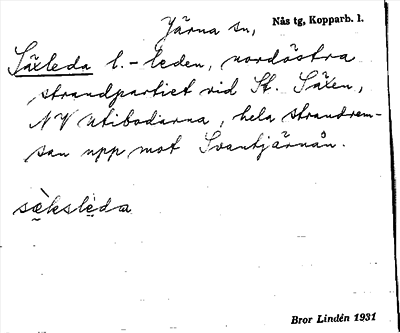 Järna sn, Nås tg, Kopparb. l.
Säxleda l. -leden, nordöstra
strandpartiet vid St. Säxen,
NV Utibodarna, hela strandrem-
san upp mot Svantjärnån.
sὲksleda
Bror Lindén 1931